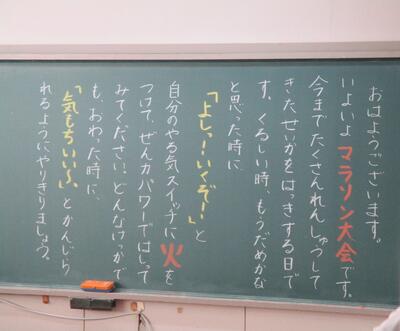 おはようございます。
いよいよマラソン大会です。
今までたくさんれんしゅうして
きたせいかをはっきする日で
す。くるしい時、もうだめかな
と思った時に
「よしっ!いくぞー!」と
自分のやる気スイッチに火を
つけて、ぜんカパワーではしって
みてください。どんなけっかで
も、おわった時に、
「気もちいい〜」とかんじら
れるようにやりきりましょう。